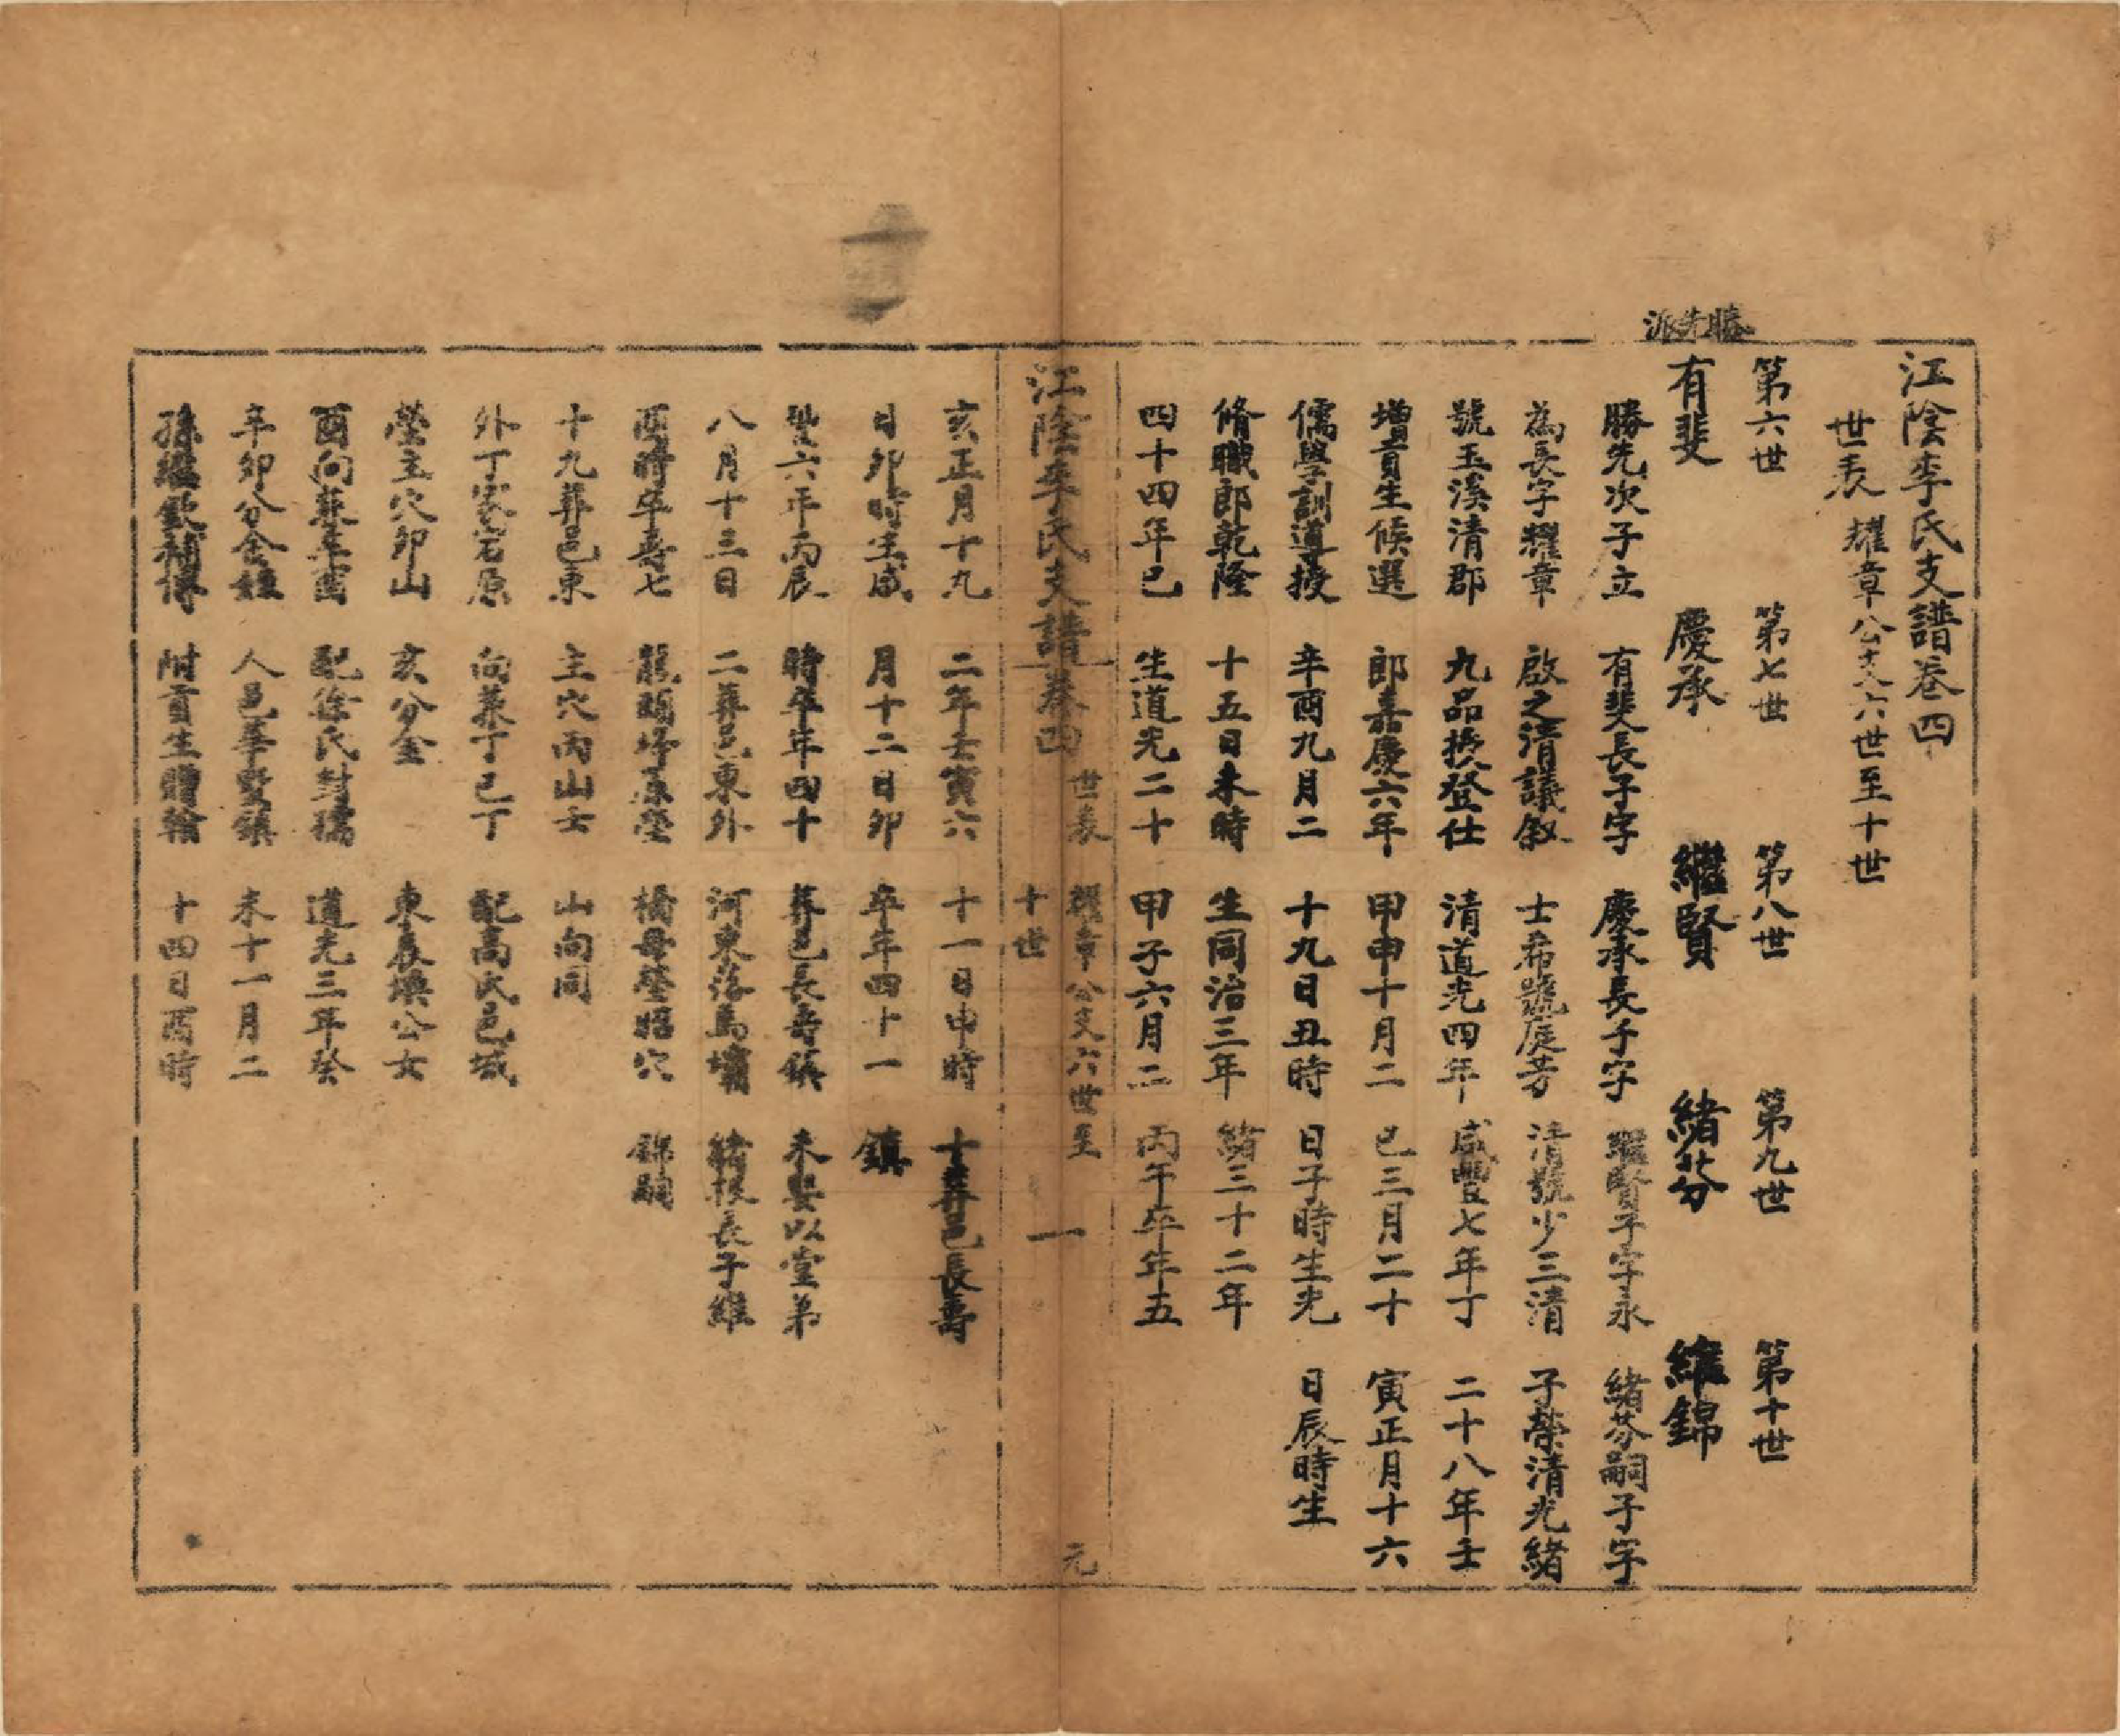 江陰李氏支譜卷四
世表 耀章公支六世至十世
第六世 第七世 第八世 第九世 第十世
勝先派
有斐 慶承 繼賢 緒芬 維錦
勝先次子立 有斐長子字 慶承長子字 繼賢子字永 緒芬嗣子字
為長字耀章 啟之清議叙 士希號庭芳 清號少三清 子榮清光緒
號玉溪清郡 九品授登仕 清道光四年 咸豐七年丁 二十八年壬
增貢生候選 郎嘉慶六年 甲申十月二 巳三月二十 寅正月十六
儒學訓導授 辛酉九月二 十九日丑時 日子時生光 日辰時生
脩職郎乾隆 十五日未時 生同治三年 緒三十二年
四十四年己 生道光二十 甲子六月二 丙午卒年五
江陰李氏支譜 卷四 世表 耀章公支六世至十世 一 元
亥正月十九 二年壬寅六 十一日申時 十葬邑長壽
日卯時生咸 月十二日卯 卒年四十一 鎮
豐六年丙辰 時卒年四十 葬邑長壽鎮 未娶以堂弟
八月十三日 二葬邑東外 河東落馬墳 緒根長子維
酉時卒壽七 龍頭圩原塋 橋母塋昭穴 錦嗣
十九葬邑東 主穴丙山壬 山向同
外丁家宕原 向兼丁巳丁 配高氏邑城
塋主穴卯山 亥分金 東晨煥公女
酉向兼乙酉 配徐氏封孺 道光三年癸
辛卯分金 人邑華墅鎮 未十一月二
附貢生贈翰 十四日酉時